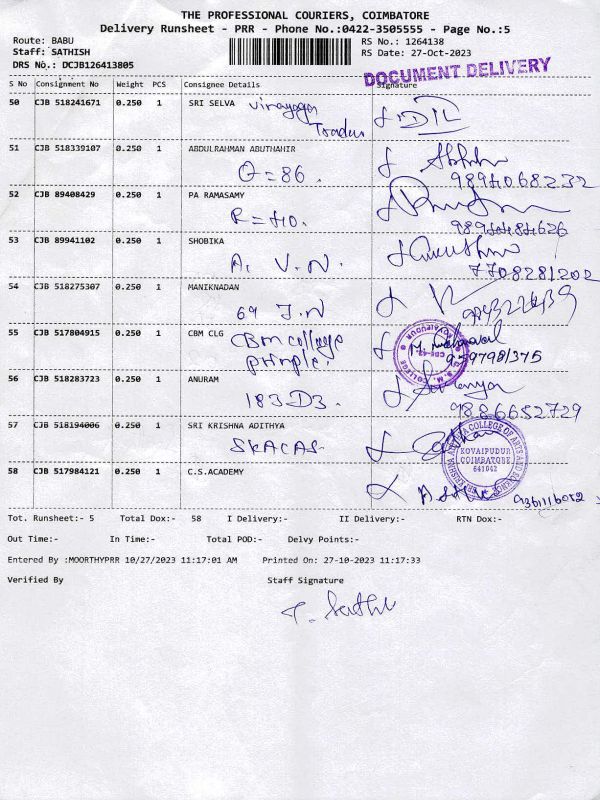 THE PROFESSIONAL COURIERS, COIMBATORE
Delivery Runsheet - PRR - Phone No.:0422-3505555 - Page No.:5
Route: BABU RS No.: 1264138
Staff: SATHISH RS Date: 27-Oct-2023
DRS No.: DCJB126413805
DOCUMENT DELIVERY
S No Consignment No Weight PCS Consignee Details Signature
50 CJB 518241671 0.250 1 SRI SELVA Vinayaga
Traders
51 CJB 518339107 0.250 1 ABDULRAHMAN ABUTHAHIR
O=86.
9894068232
52 CJB 89408429 0.250 1 PA RAMASAMY
R=40.
9894484626
53 CJB 89941102 0.250 1 SHOBIKA
A. V. N.
7708281202
54 CJB 518275307 0.250 1 MANIKNADAN
69 J.N
55 CJB 517804915 0.250 1 CBM CLG CBM college
56 CJB 518283723 0.250 1 ANURAM
183 D3.
9886652729
57 CJB 518194006 0.250 1 SRI KRISHNA ADITHYA
SKACAS
KOVAIPUDUR
COIMBATORE
641042
58 CJB 517984121 0.250 1 C.S.ACADEMY
Tot. Runsheet:- 5 Total Dox:- 58 I Delivery:- II Delivery:- RTN Dox:-
Out Time:- In Time:- Total POD:- Delvy Points:-
Entered By :MOORTHYPRR 10/27/2023 11:17:01 AM Printed On: 27-10-2023 11:17:33
Verified By Staff Signature